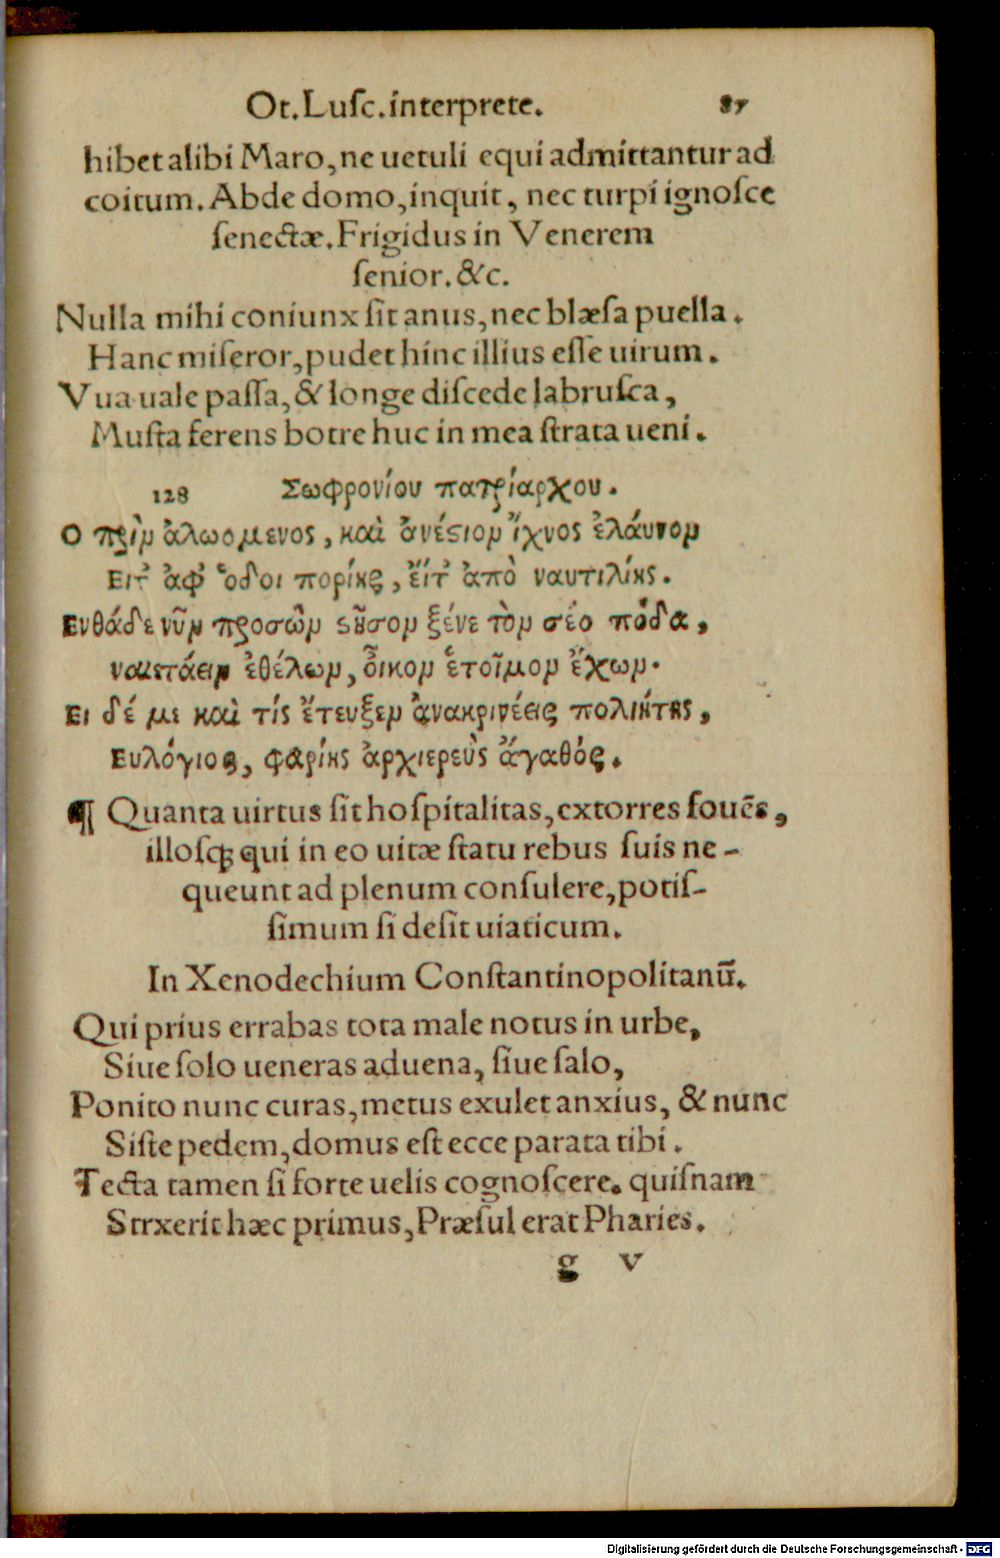 Ot. Luſc. interprete. 87
hibet alibi Maro, ne uetuli equi admittantur ad
coitum. Abde domo, inquit, nec turpi ignoſce
ſenectæ. Frigidus in Venerem
ſenior. &c.
Nulla mihi coniunx ſit anus, nec blæſa puella.
Hanc miſeror, pudet hinc illius eſſe uirum.
Vua uale paſſa, & longe diſcede labruſca,
Muſta ferens botre huc in mea ſtrata ueni.
128 Σωφρονίου πατριάρχου.
Ο πρὶν ἀλωόμενος, καὶ ἀνέστιον ἴχνος ἐλάυνον
Ειτ' ἀφ' ὁδοι πορίης, εἴτ' ἀπὸ ναυτιλίης.
Ενθάδε νῦν προσὼν στῆσον ξένε τὸν σέο πόδα,
ναιετάειν ἐθέλων, οἶκον ἑτοῖμον ἔχων.
Ει δέ με καὶ τίς ἔτευξεν ἀνακρινέεις πολιήτης,
Ευλόγιος, φαρίης ἀρχιερεὺς ἄγαθός.
¶ Quanta uirtus ſit hoſpitalitas, extorres fouẽs,
illoſqꝫ qui in eo uitæ ſtatu rebus ſuis ne-
queunt ad plenum conſulere, potiſ-
ſimum ſi deſit uiaticum.
In Xenodechium Conſtantinopolitanũ.
Qui prius errabas tota male notus in urbe,
Siue ſolo ueneras aduena, ſiue ſalo,
Ponito nunc curas, metus exulet anxius, & nunc
Siſte pedem, domus eſt ecce parata tibi.
Tecta tamen ſi forte uelis cognoſcere. quiſnam
Strxerit hæc primus, Præſul erat Pharies.
g v
Digitalisierung gefördert durch die Deutsche Forschungsgemeinschaft - DFG